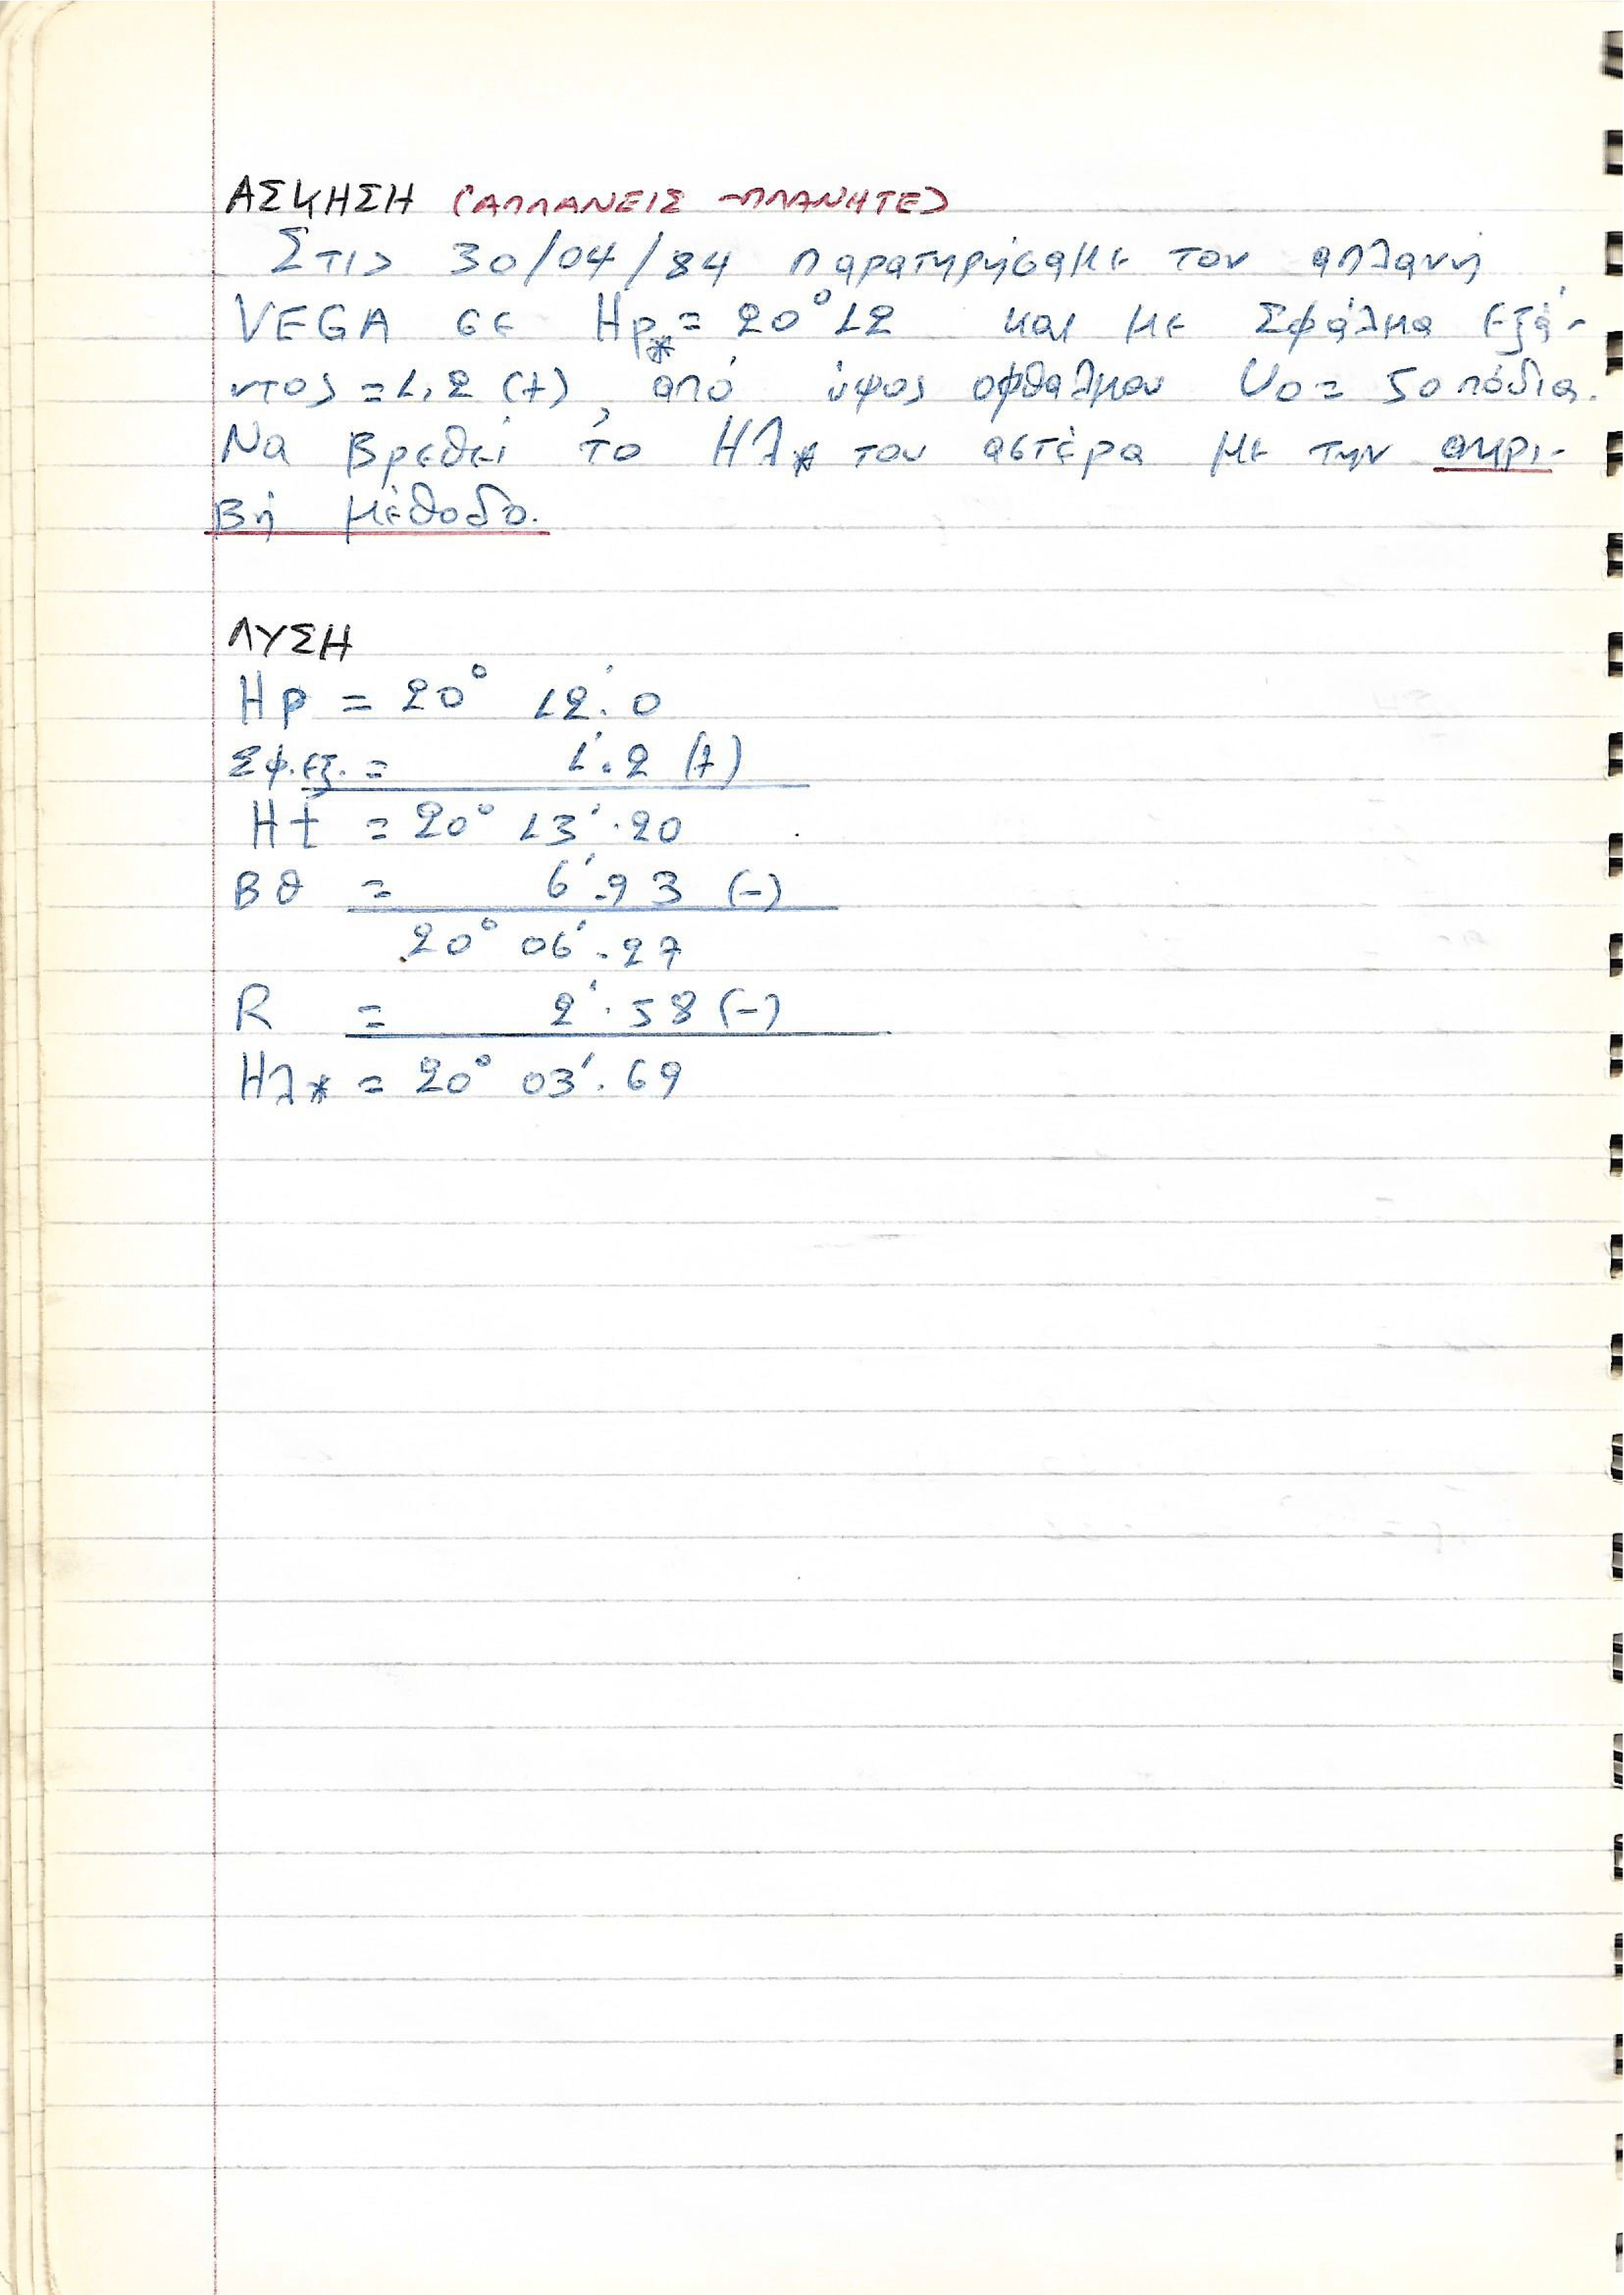 ΑΣΚΗΣΗ (ΑΠΛΑΝΕΙΣ - ΠΛΑΝΗΤΕΣ)
Στις 30/04/84 παρατηρήσαμε τον απλανή
VEGA σε Ηρ* = 20° 12' και με Σφάλμα εξά-
ντος = 1,2 (+), από ύψος οφθαλμου Υο = 50 πόδια.
Να βρεθεί το Ηλ* του αστέρα με την ακρι-
βή μέθοδο.
ΛΥΣΗ
Ηρ = 20° 12'.0
Σφ.εξ. = 1'.2 (+)
Ht = 20° 13'.20
Βθ = 6'.93 (-)
20° 06'.27
R = 2'.58 (-)
Ηλ* = 20° 03'.69